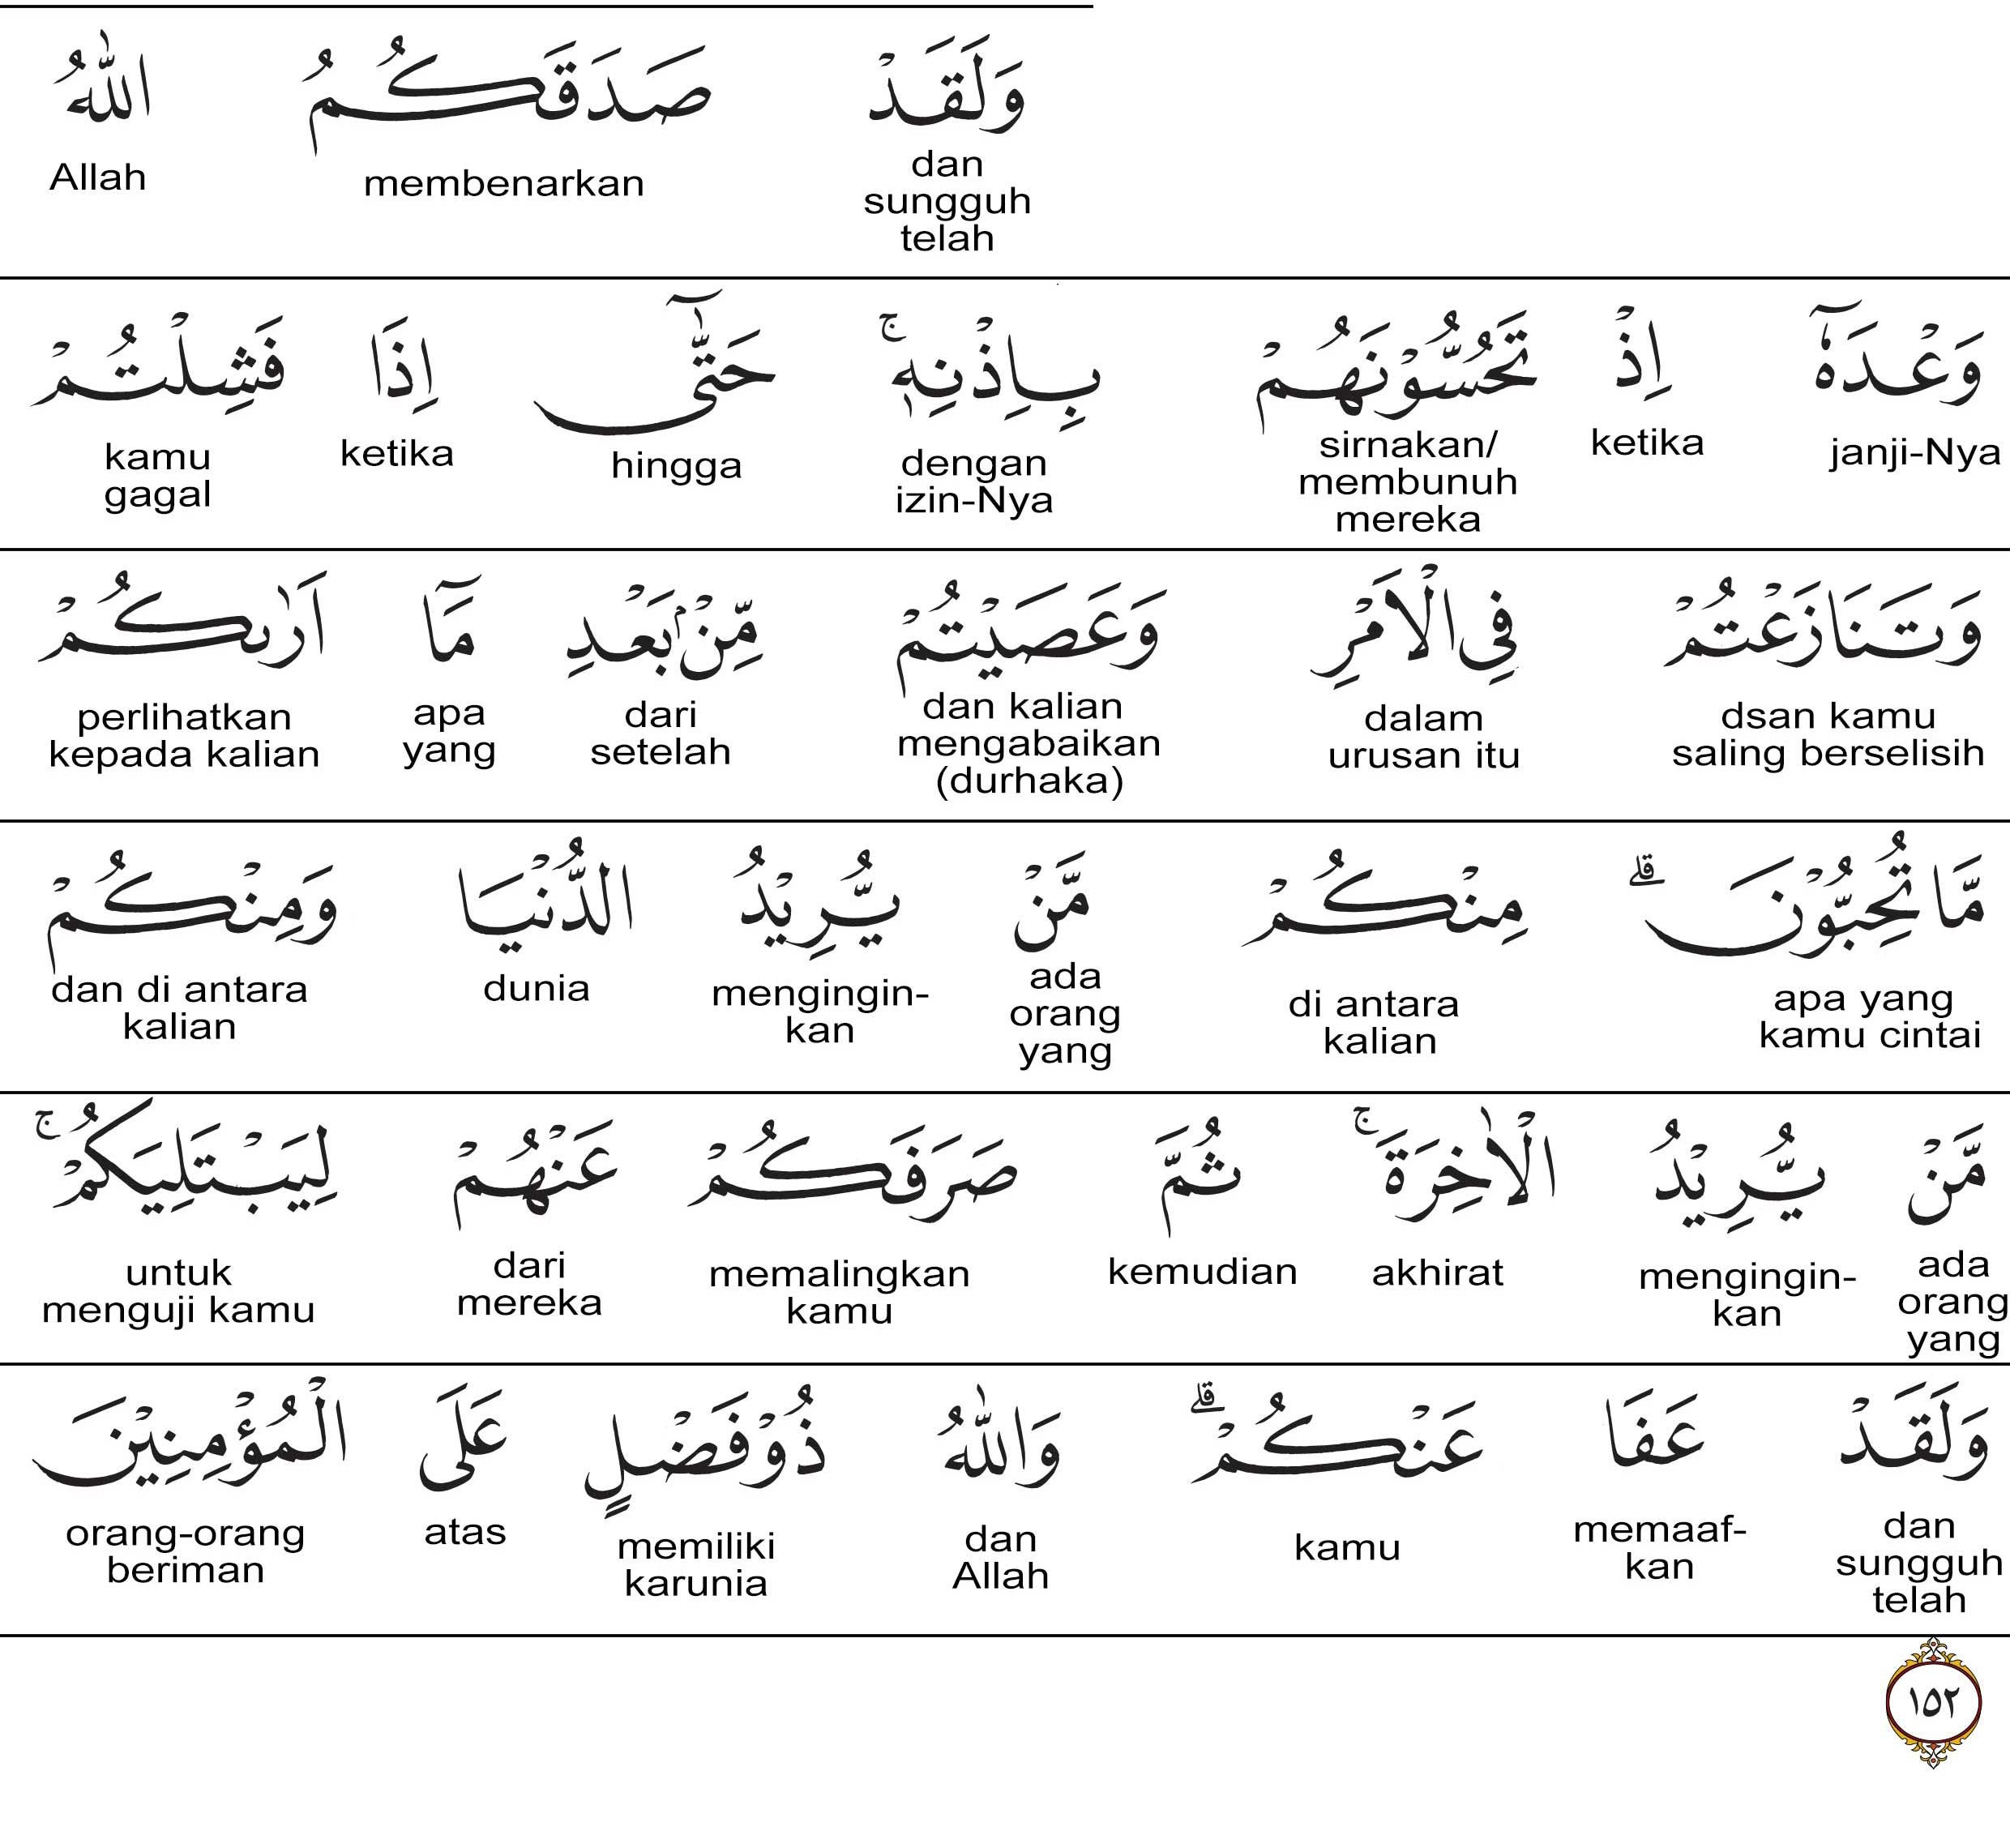 وَلَقَدْ صَدَقَكُمُ اللّٰهُ
dan sungguh telah membenarkan Allah
وَعْدَهٗٓ اِذْ تَحُسُّوْنَهُمْ بِاِذْنِهٖ ۚ حَتّٰىٓ اِذَا فَشِلْتُمْ
janji-Nya ketika sirnakan/ membunuh mereka dengan izin-Nya hingga ketika kamu gagal
وَتَنَازَعْتُمْ فِى الْاَمْرِ وَعَصَيْتُمْ مِّنْۢ بَعْدِ مَآ اَرٰىكُمْ
dsan kamu saling berselisih dalam urusan itu dan kalian mengabaikan (durhaka) dari setelah apa yang perlihatkan kepada kalian
مَّا تُحِبُّوْنَ ۗ مِنْكُمْ مَّنْ يُّرِيْدُ الدُّنْيَا وَمِنْكُمْ
apa yang kamu cintai di antara kalian ada orang yang mengingin- kan dunia dan di antara kalian
مَّنْ يُّرِيْدُ الْاٰخِرَةَ ۚ ثُمَّ صَرَفَكُمْ عَنْهُمْ لِيَبْتَلِيَكُمْ ۚ
ada orang yang mengingin- kan akhirat kemudian memalingkan kamu dari mereka untuk menguji kamu
وَلَقَدْ عَفَا عَنْكُمْ ۗ وَاللّٰهُ ذُوْ فَضْلٍ عَلَى الْمُؤْمِنِيْنَ
dan sungguh telah memaaf- kan kamu dan Allah memiliki karunia atas orang-orang beriman
١٥٢